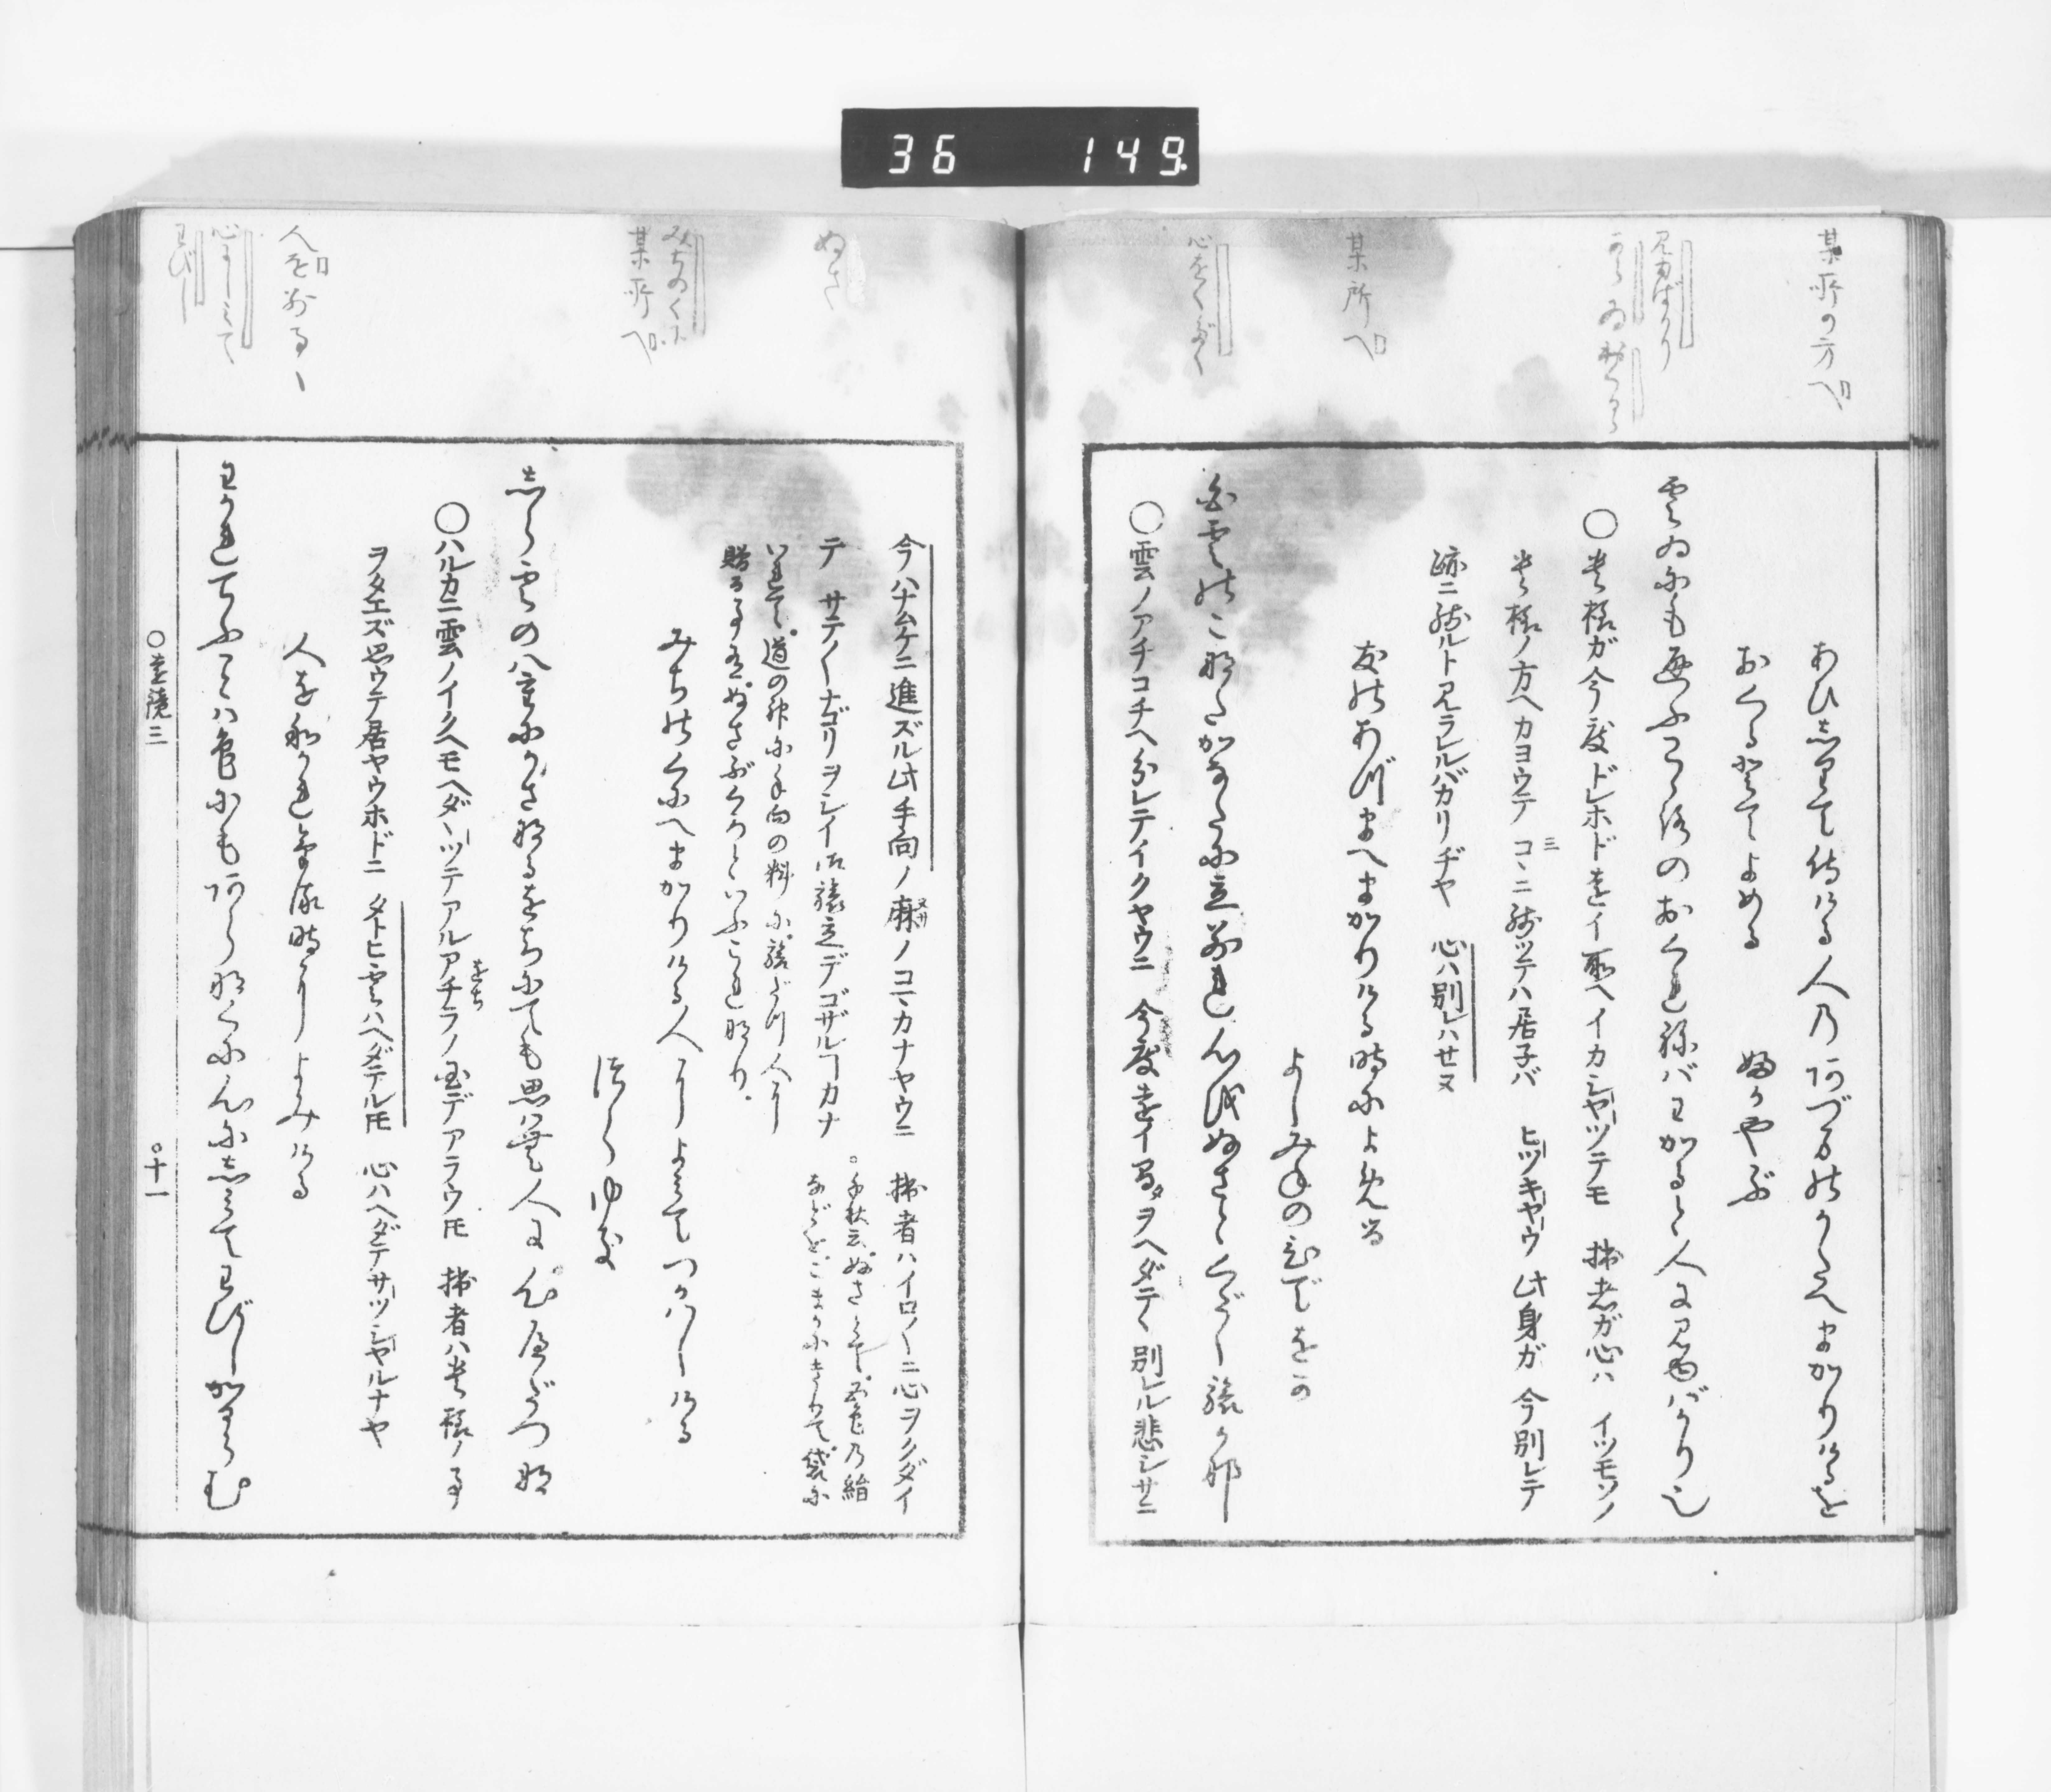 某所の方へ
見るばかり
某所へ
心をくだく
あひしりて侍ける人のあづまのかたへまかりけるを
おくるとてよめる　ふかやぶ
雲ゐにも通ふこゝろのおくれねばわかると人に見ゆばかり也
○貴様ガ今度ドレホド遠イ所ヘイカシヤツテモ　拙者ガ心ハ　イツモソノ
貴様ノ方ヘカヨウテ　コヽニ残ツテハ居子バ　ヒツキヤウ　此身ガ　今別レテ
跡ニ残ルト見ラレルバカリヂヤ　心ハ別レハセヌ
友のあづまへまかりける時によめる
よしみねのひでをか
白雲のこなたかなたに立別れ心をぬさとくだく旅かな
○雲ノアチコチヘ分レテイクヤウニ　今度遠イ国ヲヘダテヽ別レル悲シサニ
ぬさ
みちのくに
某所へ
人を別るゝ
心にしみて
わびし
今ハナムケニ進ズル此手向ノ麻ノコマカナヤウニ　拙者ハイロ〳〵ニ心ヲクダイ
テ　サテ〳〵ナゴリヲシイ御旅立デゴザルヿカナ　○千秋云、ぬさとて、五色の絹
などを、こまかにきりて、袋に
いれて、道の神に手向の料に、旅だつ人に
贈る事有、ぬさぶくろといふこれ也。
みちのくにへまかりける人によみてつかはしける
つらゆき
しら雲の八重にかさなるをちにても思はむ人に心へだつな
○ハルカニ雲ノイクヘモヘダヽツテアルアチラノ国デアラウトモ　拙者ハ貴様ノ事
ヲタエズ思ウテ居ヤウホドニ　タトヒ雲ハヘダテルトモ　心ハヘダテサツシヤルナヤ
人をわかれける時によみける
わかれてふことは色にもあらなくに心にしみてわびしかるらむ
○遠鏡三　○十一
36 149